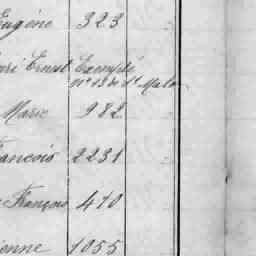 Eugène 323
Ernest Exempté
n° 13 de St Malo
Marie 982
François 2231
François 410
ienne 1055